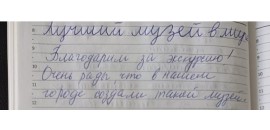 Лучший музей в ми
Благодарим за экскурсию!
Очень рады, что в нашем
городе создали такой музей.